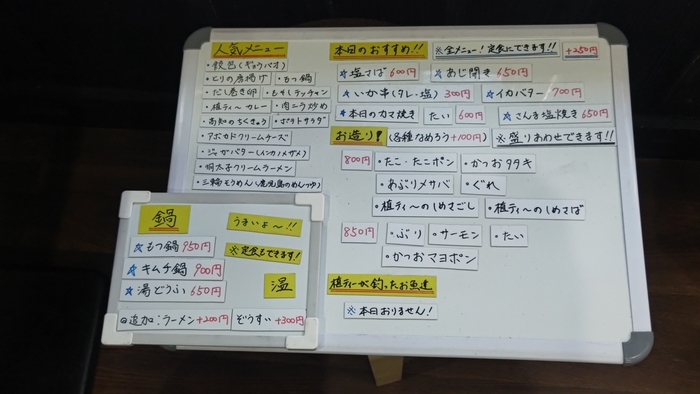 人気メニュー
・餃包(ぎょうパオ)
・とりの唐揚げ ・もつ鍋
・だし巻き卵 ・もやしナッチャン
・植ティ〜カレー ・肉ニラ炒め
・高知のちくきゅう ・ポテトサラダ
・アボカドクリームチーズ
・ジャガバター(インカノメザメ)
・明太子クリームラーメン
・三輪そうめん(鹿児島のめんつゆ)
本日のおすすめ!!
※全メニュー!定食にできます!! +250円
☆塩さば 600円 ☆あじ開き 650円
☆いか串(タレ・塩) 300円 ☆イカバター 700円
☆本日のカマ焼き たい 600円 ☆さんま塩焼き 650円
お造り! (各種なめろう+100円) ※盛りあわせできます!!
800円 ・たこ・たこポン ・かつおタタキ
・あぶりメサバ ・ぐれ
・植ティ〜のしめさごし ・植ティ〜のしめさば
850円 ・ぶり ・サーモン ・たい
・かつおマヨポン
植ティーが釣ったお魚達
※本日おりません!
鍋 うまいよ〜!!
☆もつ鍋 950円 ※定食もできます!
☆キムチ鍋 900円
☆湯どうふ 650円 温
◎追加:ラーメン+200円 ぞうすい+300円